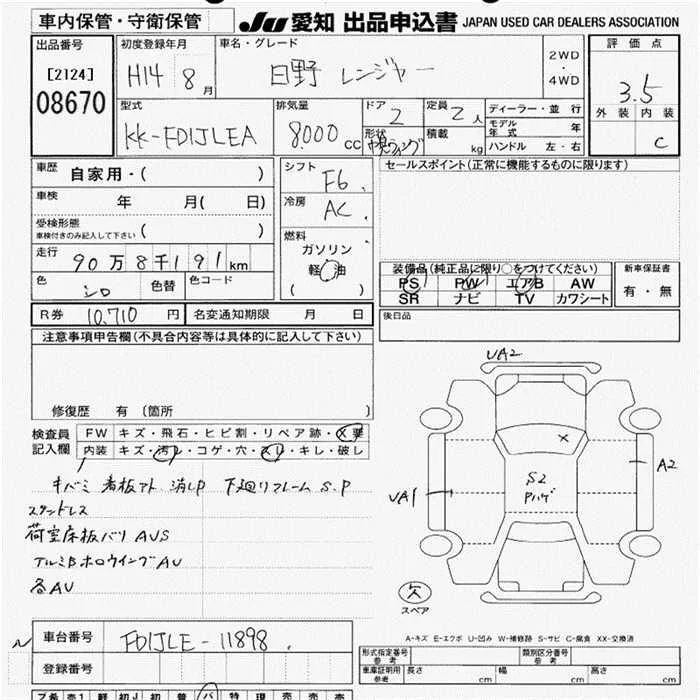 車内保管・守衛保管
JU 愛知 出品申込書 JAPAN USED CAR DEALERS ASSOCIATION
出品番号
[2124]
08670
初度登録年月
H14 8月
車名・グレード
日野 レンジャー
2WD
・
4WD
評価点
3.5
外装 内装
C
型式
KK-FD1JLEA
排気量
8.000cc
ドア
2
形状
定員
2人
積載
kg
ディーラー・並行
モデル年式 年
ハンドル 左・右
車歴
自家用・( )
車検
年 月( 日)
受検形態
車検付きのみ記入して下さい ( )
走行
90万8千191km
色
シロ
色替
色コード
シフト
F6
冷房
AC
燃料
ガソリン
軽油
( )
セールスポイント(正常に機能するものに限ります)
装備品(純正品に限り○をつけてください)
PS PW エアB AW
SR ナビ TV カワシート
新車保証書
有・無
後日品
R券 10,710円
名変通知期限 月 日
注意事項申告欄(不具合内容等は具体的に記入して下さい)
修復歴 有(箇所 )
検査員
記入欄
FW キズ・飛石・ヒビ割・リペア跡・X要
内装 キズ・汚レ・コゲ・穴・スレ・キレ・破し
キバミ 看板アト 消しP 下廻りフレームS.P
スタンドレス
荷室床板バリ AUS
アルミBホロウイングAU
各AU
UA2
A2
UA1
S2
Pハゲ
X
スペア
A-キズ E-エクボ U-凹み W-補修跡 S-サビ C-腐食 XX-交換済
車台番号
FD1JLE-11898
登録番号
形式指定番号
参考
類別区分番号
参考
車庫証明用
参考
長さ cm 幅 cm 高さ cm